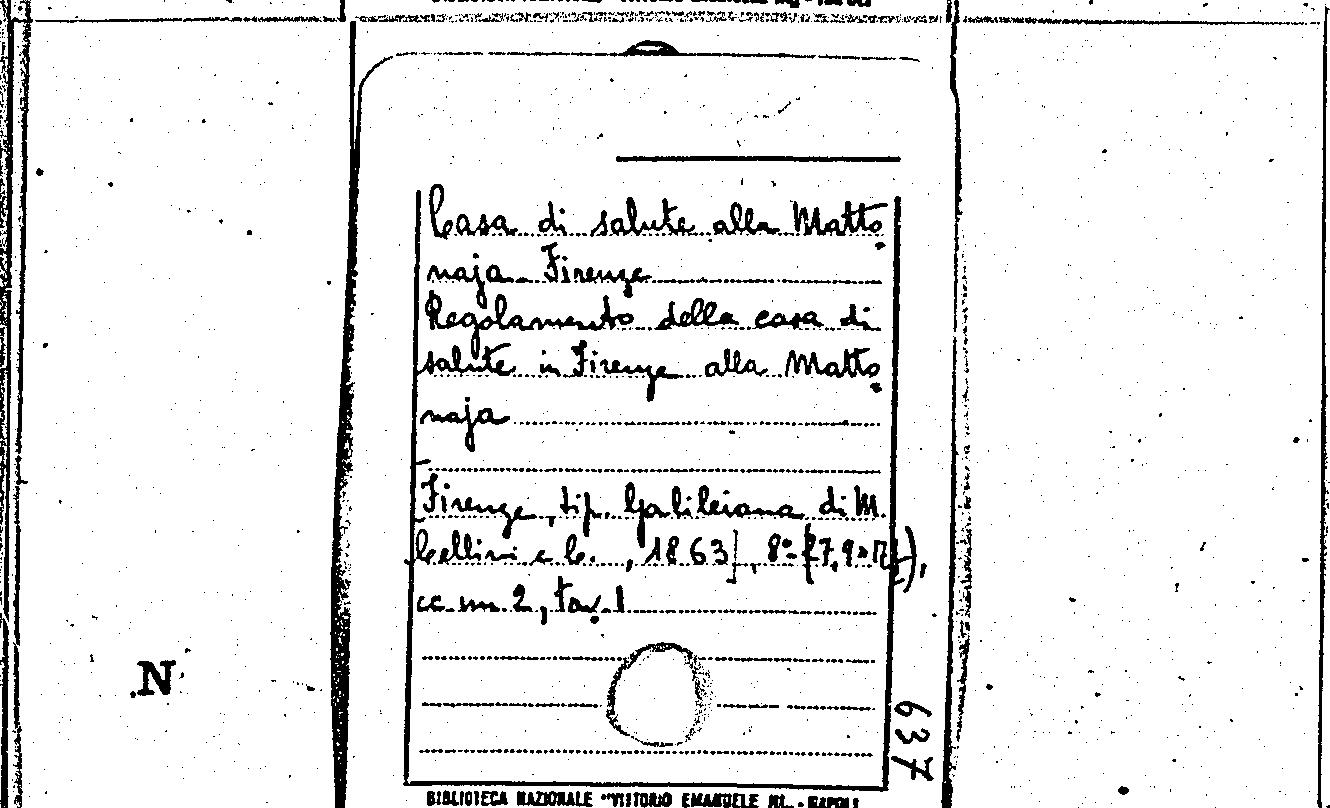 Casa di salute alla Matto
naja Firenze
Regolamento della casa di
salute in Firenze alla Matto
naja
Firenze, tip. Galileiana di M.
Cellini e C., 1863], 8°
cc. nn. 2, tav. 1
N
637
BIBLIOTECA NAZIONALE "VITTORIO EMANUELE III" - NAPOLI